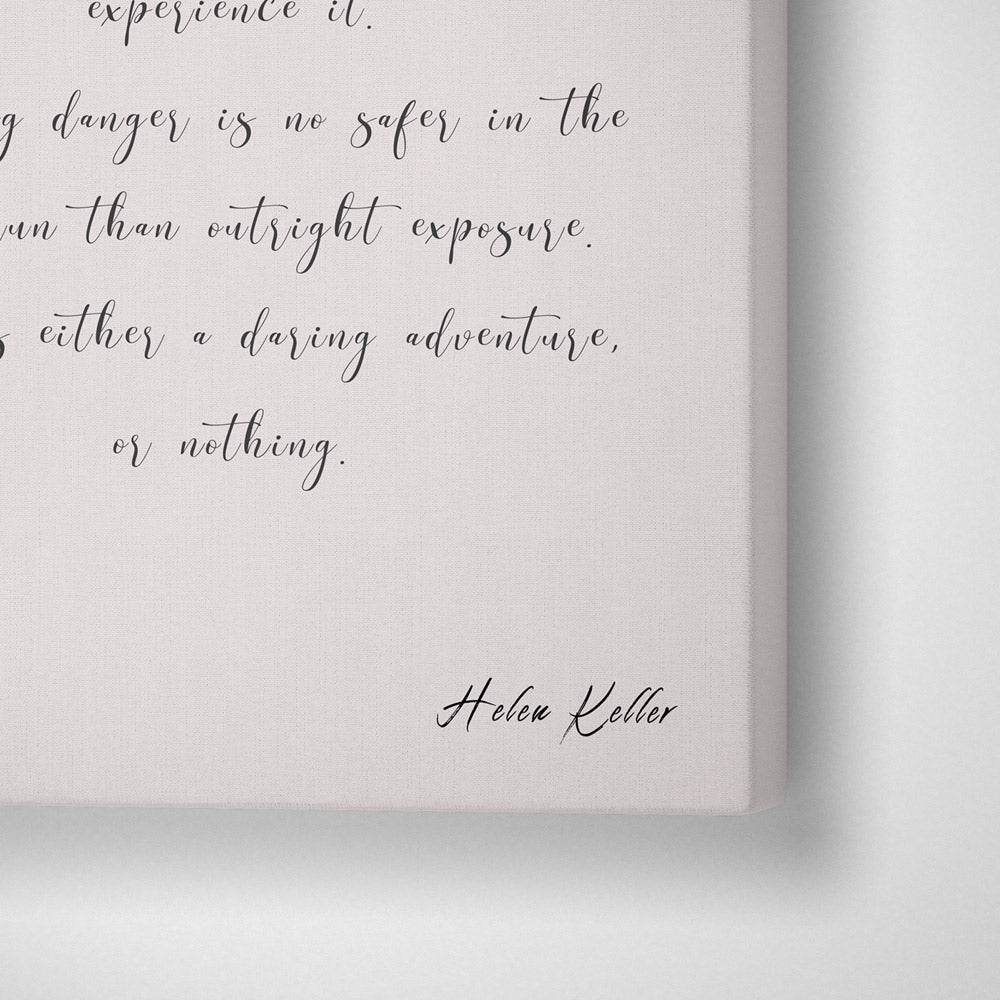 experience it.
g danger is no safer in the
un than outright exposure.
s either a daring adventure,
or nothing.
Helen Keller